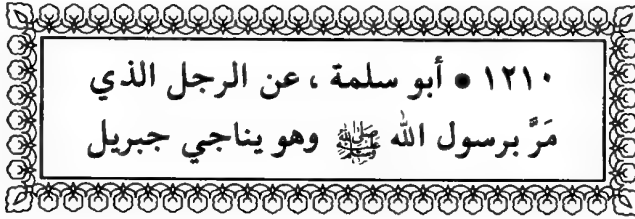 ١٢١٠ • أبو سلمة ، عن الرجل الذي
مَرَّ برسول الله ﷺ وهو يناجي جبريل